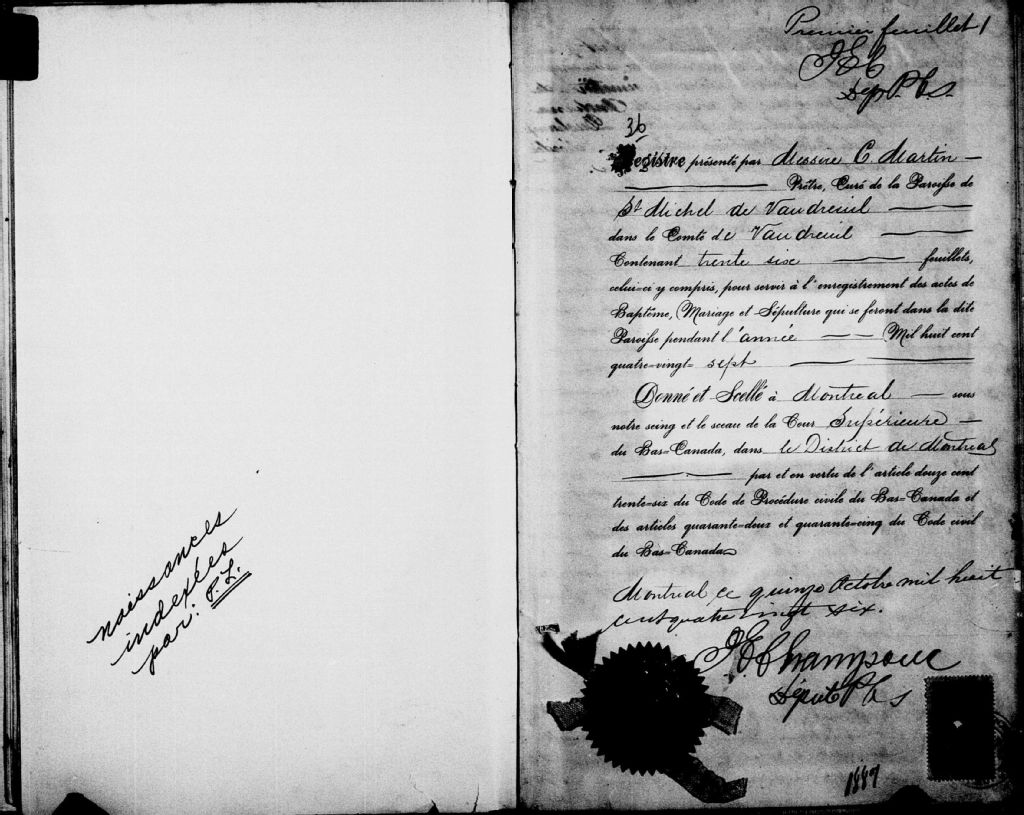 naissances
indexées
par: P. L.
Premier feuillet 1
J E C
Dép. P. C. S.
36
Registre présenté par Messire C. Martin
Prêtre, Curé de la Paroisse de
St Michel de Vaudreuil
dans le Comté de Vaudreuil
Contenant trente six feuillets,
celui-ci y compris, pour servir à l'enregistrement des actes de
Baptême, Mariage et Sépulture qui se feront dans la dite
Paroisse pendant l'année Mil huit cent
quatre-vingt-sept
Donné et Scellé à Montreal sous
notre seing et le sceau de la Cour Supérieure
du Bas-Canada, dans le District de Montreal
par et en vertu de l'article douze cent
trente-six du Code de Procédure civile du Bas-Canada et
des articles quarante-deux et quarante-cinq du Code civil
du Bas-Canada
Montreal ce quinze Octobre mil huit
cent quatre vingt six.
J E Champoux
Député P C S
1887